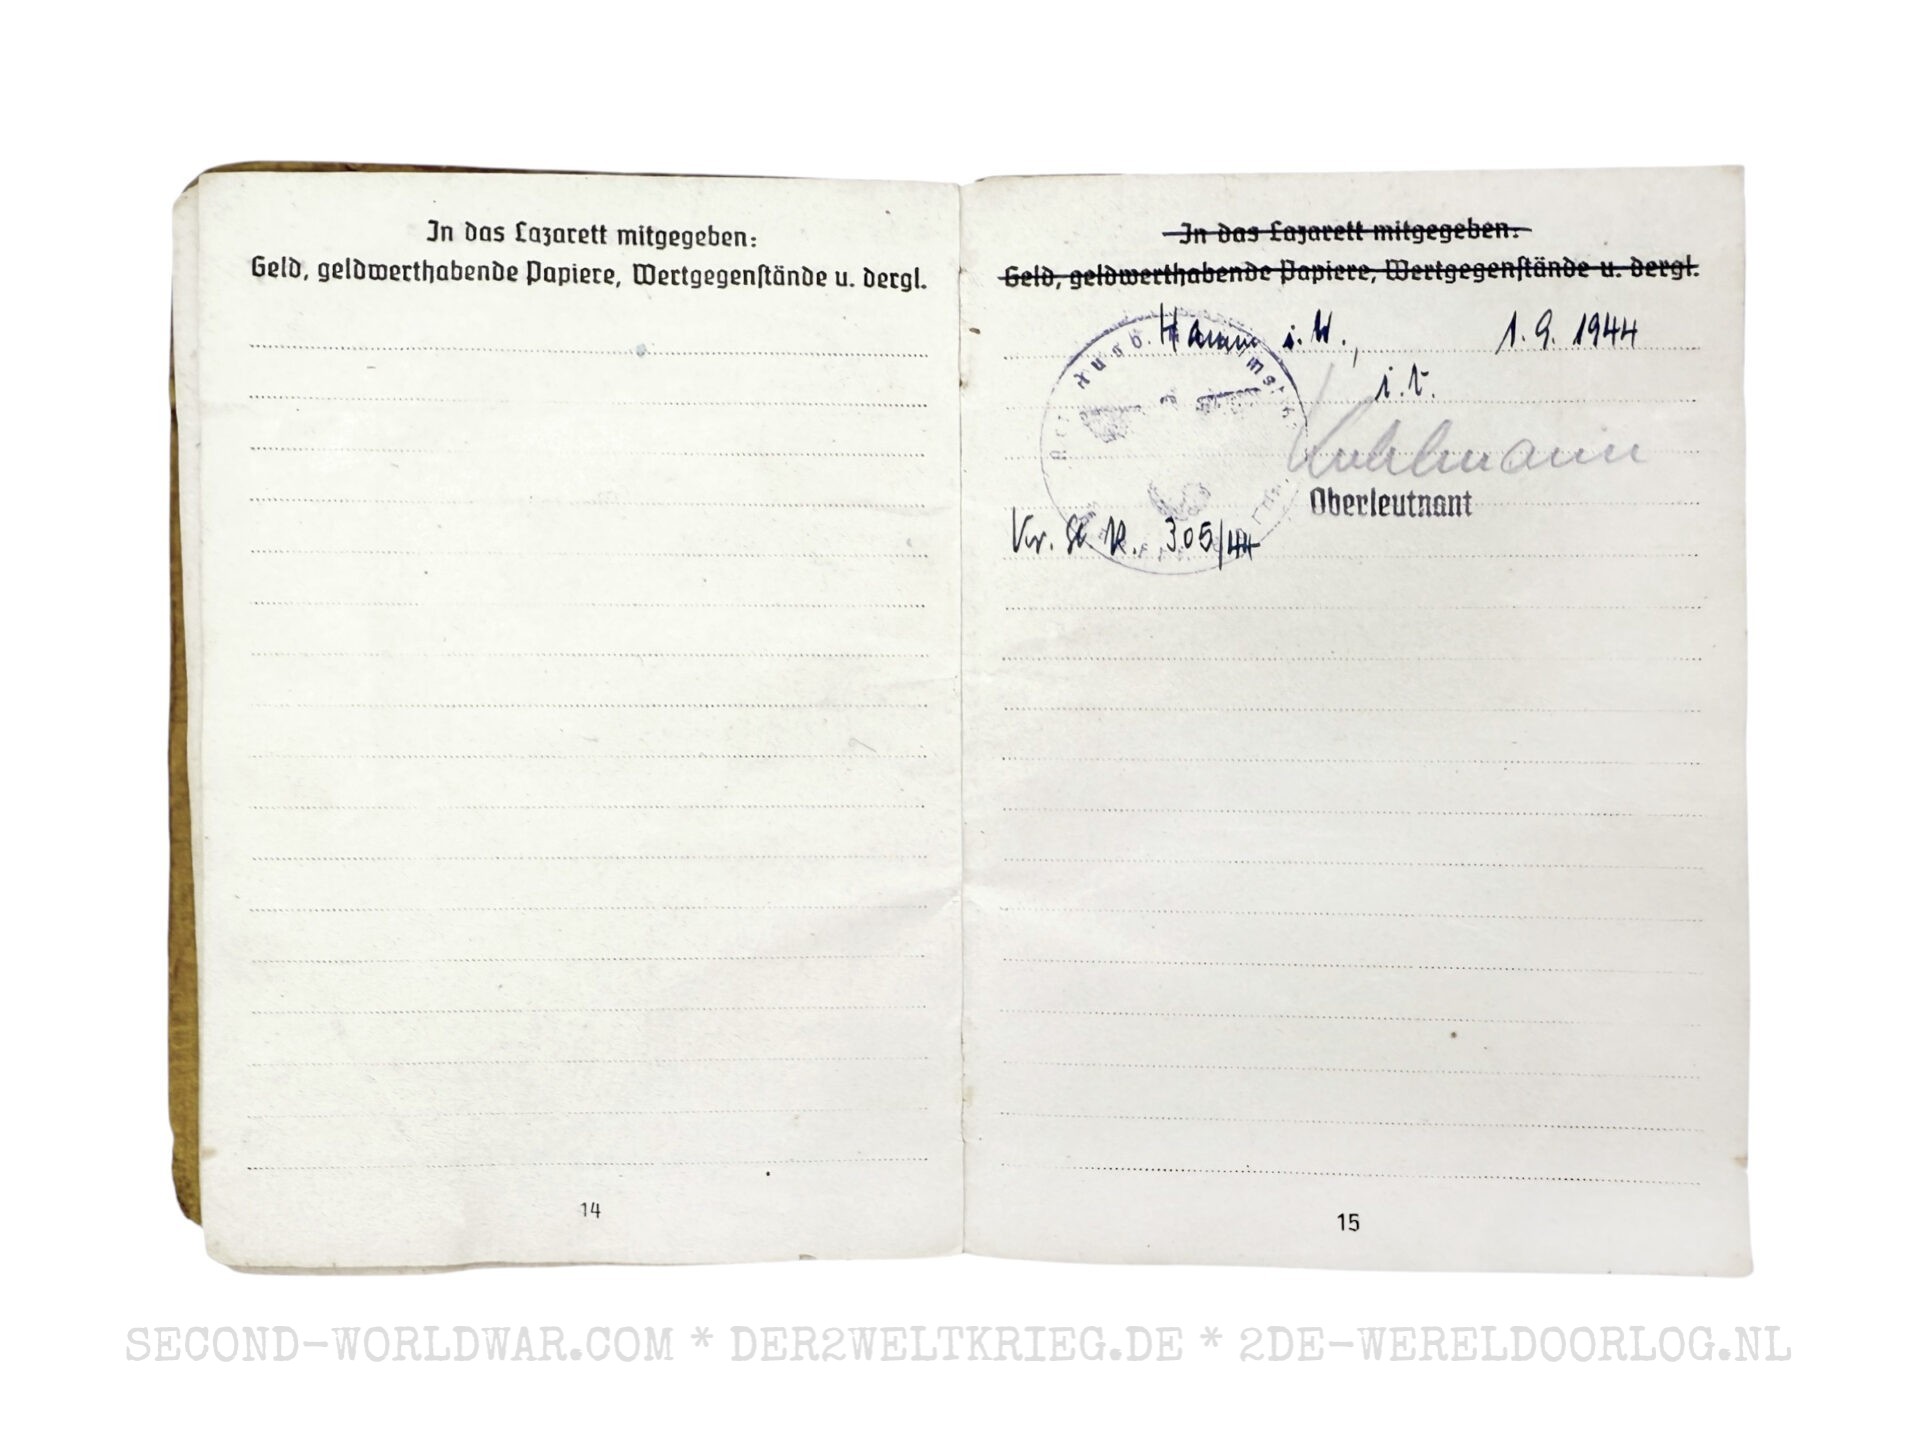 In das Lazarett mitgegeben:
Geld, geldwerthabende Papiere, Wertgegenstände u. dergl.
14
In das Lazarett mitgegeben:
Geld, geldwerthabende Papiere, Wertgegenstände u. dergl.
Hamm i. W., 1. 9. 1944
Ausb.
Oberleutnant
305/44
15
SECOND-WORLDWAR.COM * DER2WELTKRIEG.DE * 2DE-WERELDOORLOG.NL